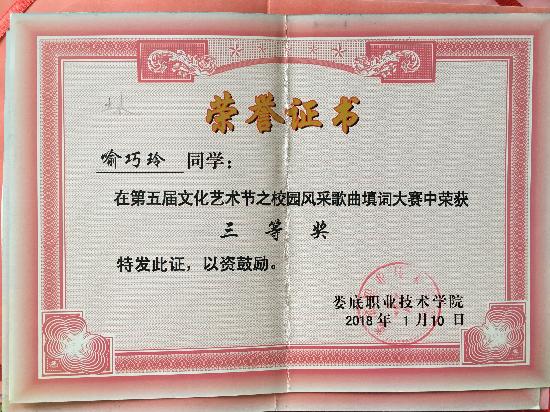 荣誉证书
喻巧玲 同学：
在第五届文化艺术节之校园风采歌曲填词大赛中荣获
三等奖
特发此证，以资鼓励。
娄底职业技术学院
2018年1月10日